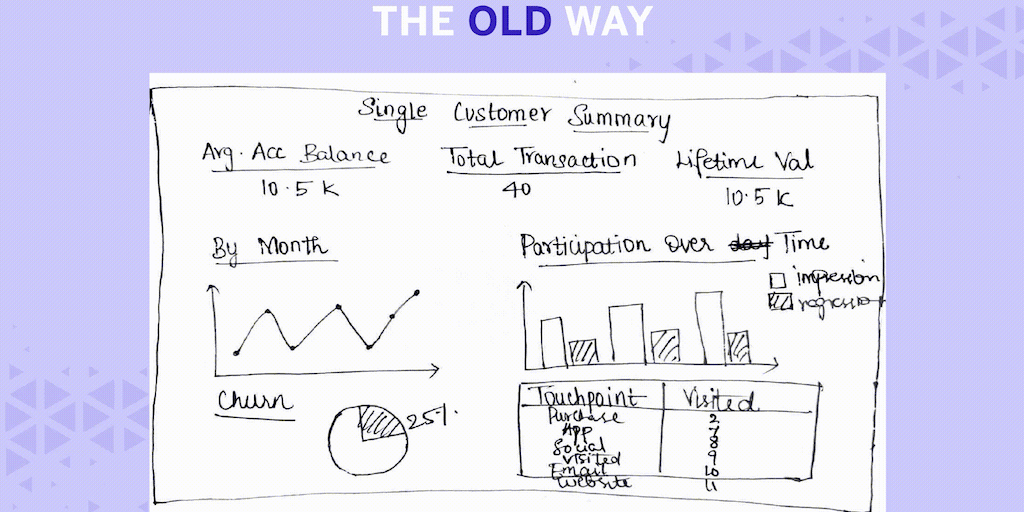 THE OLD WAY
Single Customer Summary
Avg. Acc Balance
10.5 K
Total Transaction
40
Lifetime Val
10.5 K
By Month
Participation Over Time
impression
Churn
25%
Touchpoint Visited
Purchase 2
App 7
Social 8
Visited 9
Email 10
Website 11